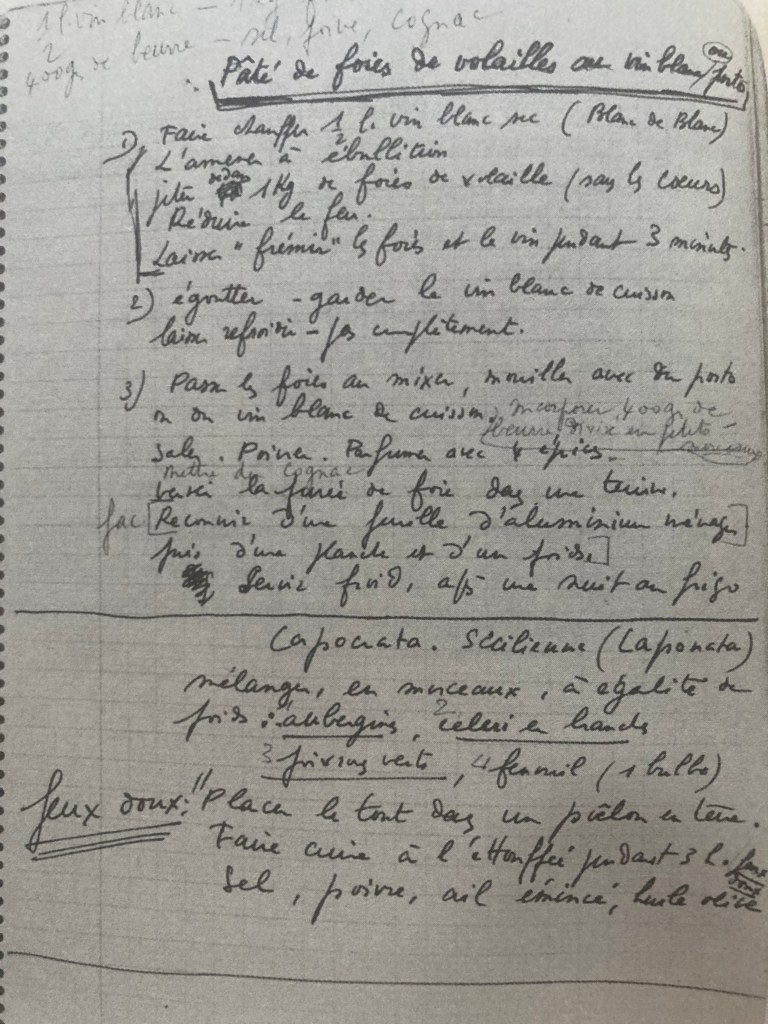 1/2 l. vin blanc - 1 kg
400gr de beurre - sel, poivre, cognac
Pâté de foies de volailles au vin blanc/ou porto
1) Faire chauffer 1/2 l. vin blanc sec (Blanc de Blanc)
L'amener à ébullitain
jeter dedans 1Kg de foies de volaille (sans les cœurs)
Réduire le feu.
Laisser "frémir" les foies et le vin pendant 3 minutes.
2) égoutter - garder le vin blanc de cuisson
laisser refroidir - pas complètement.
3) Passer les foies au mixer, mouiller avec du porto
ou du vin blanc de cuisson, incorporer 400gr de
beurre divisé en petits
morceaux
Saler. Poivrer. Parfumer avec 4 épices.
mettre du Cognac
verser la purée de foie dans une terrine.
fac [Recouvrir d'une feuille d'aluminium ménager]
puis d'une planche et d'un poids]
Servir froid, aps une nuit au frigo
Capocnata. Sicilienne (Caponata)
mélanger, en morceaux, à égalité de
poids : 1 aubergines, 2 céleri en branches
3 poivrons verts, 4 fenouil (1 bulbe)
feux doux: "Placer le tout dans un poêlon en terre.
Faire cuire à l'étouffée pendant 3 h. feux
doux
Sel, poivre, ail émincé, huile olive